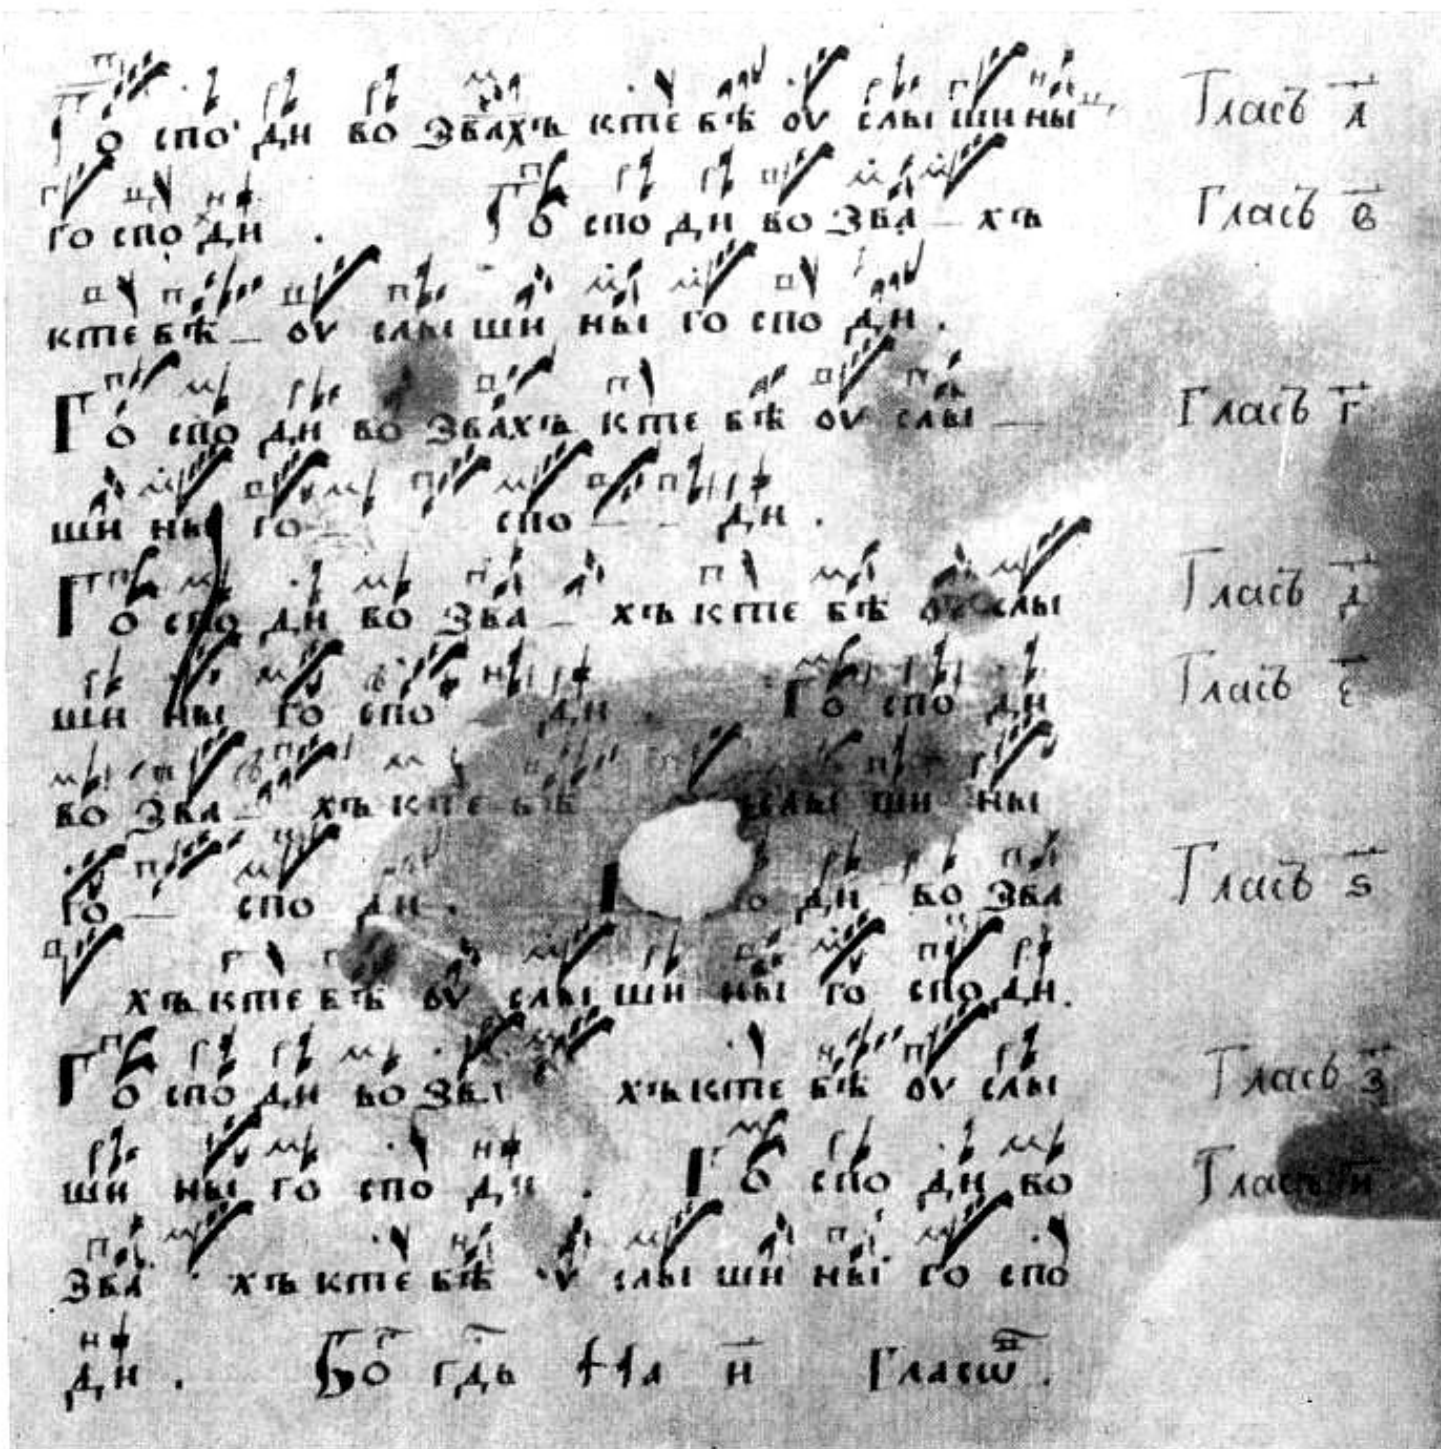 Го спо ди во звахъ ктебѣ оу слы ши ны Гласъ а҃
го спо ди . Го спо ди во зва – хъ Гласъ в҃
ктебѣ – оу слы ши ны го спо ди .
Го спо ди во звахъ ктебѣ оу слы — Гласъ г҃
ши ны го – – спо – – ди .
Го спо ди во зва – хъ ктебѣ оу слы Гласъ д҃
ши ны го спо – ди . Го спо ди Гласъ е҃
во зва – хъ ктебѣ слы ши ны
го — спо ди . ди во зва Гласъ ѕ҃
хъ ктебѣ оу слы ши ны го спо ди .
Го спо ди во зва хъ ктебѣ оу слы Гласъ з҃
ши ны го спо ди . Го спо ди во Гласъ и҃
зва хъ ктебѣ оу слы ши ны го спо
ди . На и҃